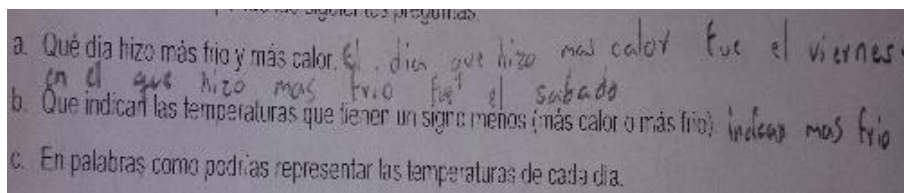 siguientes preguntas.
a. Qué día hizo más frio y más calor. El día que hizo mas calor fue el viernes
en el que hizo mas frio fue el sabado
b. Que indican las temperaturas que tienen un signo menos (más calor o más frio) indican mas frio
c. En palabras como podrías representar las temperaturas de cada dia.